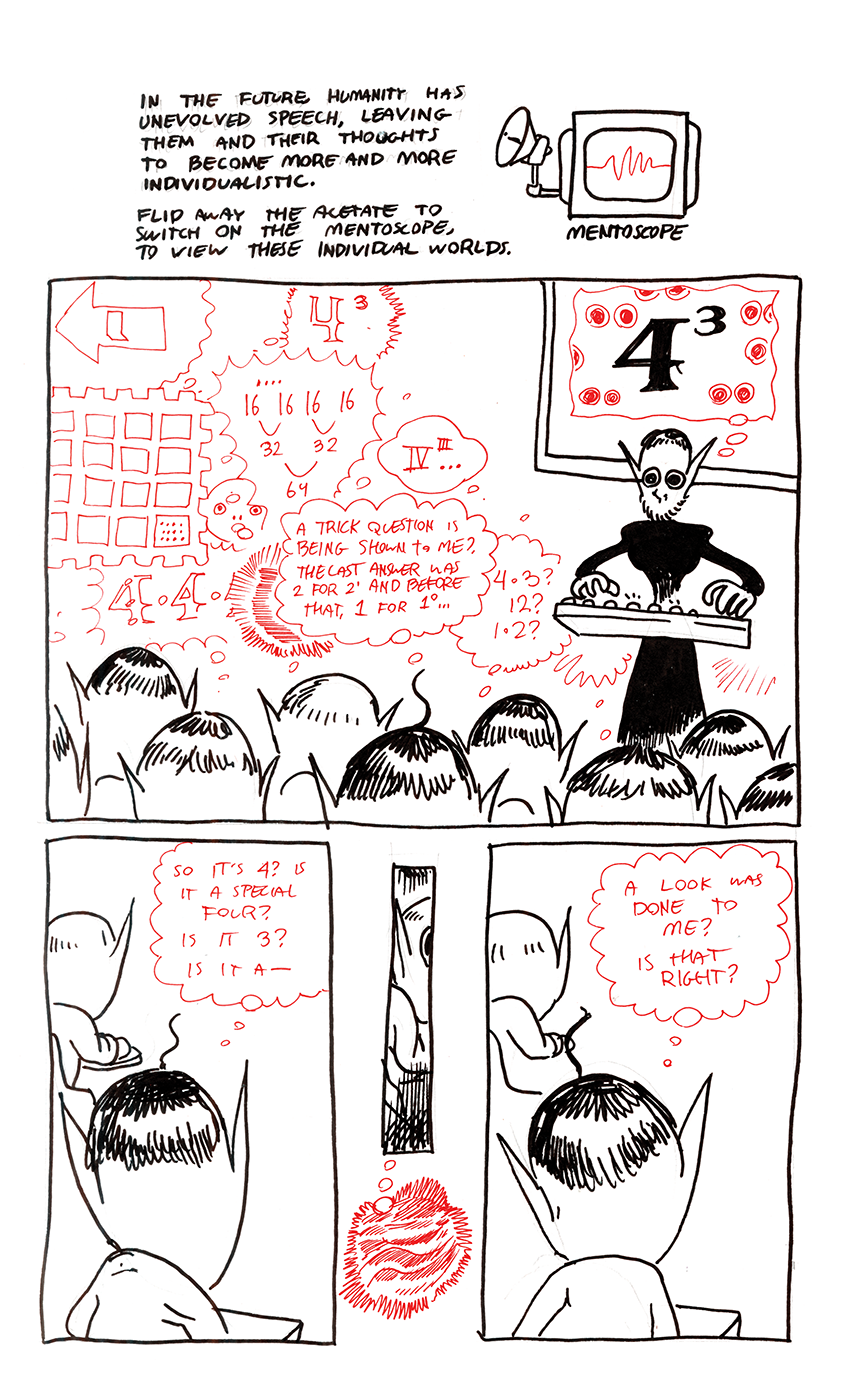 IN THE FUTURE HUMANITY HAS
UNEVOLVED SPEECH, LEAVING
THEM AND THEIR THOUGHTS
TO BECOME MORE AND MORE
INDIVIDUALISTIC.
FLIP AWAY THE ACETATE TO
SWITCH ON THE MENTOSCOPE,
TO VIEW THESE INDIVIDUAL WORLDS.
MENTOSCOPE
4³
4³
16 16 16 16
32 32
64
IV^III...
A TRICK QUESTION IS
BEING SHOWN TO ME?
THE LAST ANSWER WAS
2 FOR 2¹ AND BEFORE
THAT, 1 FOR 1⁰...
4·3?
12?
1·2?
4·4·
SO IT'S 4? IS
IT A SPECIAL
FOUR?
IS IT 3?
IS IT A—
A LOOK WAS
DONE TO
ME?
IS THAT
RIGHT?